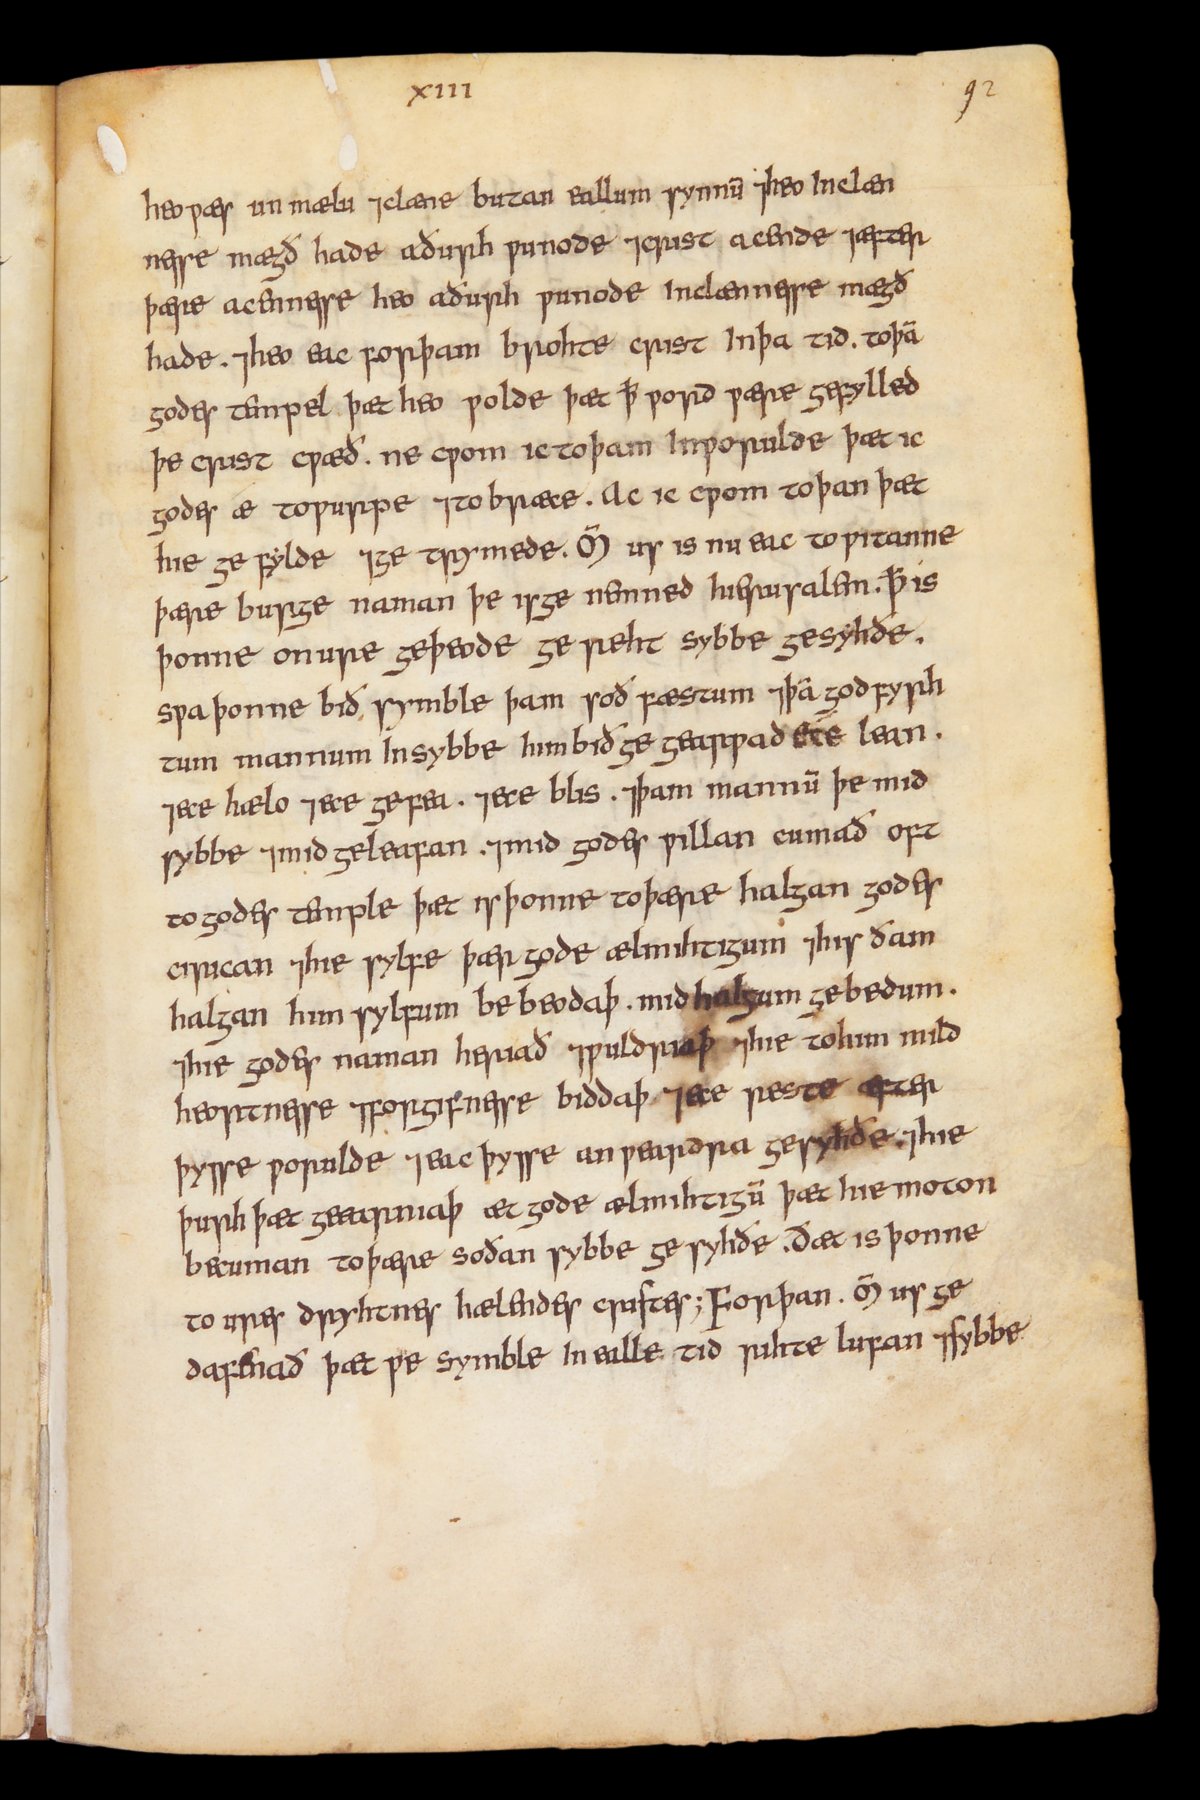 xiii
92
heo ƿæs un mælu ⁊clæne butan eallum synnū ⁊heo In clæn
nesse mægð hade aðurh ƿunode ⁊crist acende ⁊æfter
þære acennesse heo aðurh ƿunode In clænnesse mægð
hade . ⁊heo eac forþam brohte crist In þa tid . to þā
godes tempel þæt heo ƿolde þæt ꝥ ƿord ƿære gefylled
þe crist cƿæð . ne cƿom ic to þam In ƿorulde þæt ic
godes æ toƿurpe ⁊to bræce . Ac ic cƿom to þan þæt
hie ge fylde ⁊ge trymede . Ō us is nu eac to ƿitanne
þære burge naman þe is ge nemned hierusalem . ꝥ is
þonne on ure geþeode ge reht sybbe gesyhðe .
sƿa þonne bið symble þam soð fæstum ⁊þā god fyrh
tum mannum In sybbe him bið ge gearƿad ece lean .
⁊ece hælo ⁊ece gefea . ⁊ece blis . ⁊þam mannū þe mid
sybbe ⁊mid geleafan . ⁊mid godes ƿillan cumað oft
to godes temple þæt is þonne to þære halgan godes
cirican ⁊hie sylfe þær gode ælmihtigum ⁊his ðam
halgan him sylfum be beodaþ . mid halgum gebedum .
⁊hie godes naman heriað ⁊ƿuldriaþ ⁊hie to him mild
heortnesse ⁊forgifnesse biddaþ ⁊ece reste æfter
þysse ƿorulde ⁊eac þysse anƿeardra gesyhðe . ⁊hie
þurh þæt geearniaþ æt gode ælmihtigū þæt hie moton
becuman to þære soðan sybbe ge syhðe . Ðæt is þonne
to ures dryhtnes hælendes cristes ; Forþan . Ō us ge
dafenað þæt ƿe symble In ealle tid rihte lufan ⁊sybbe